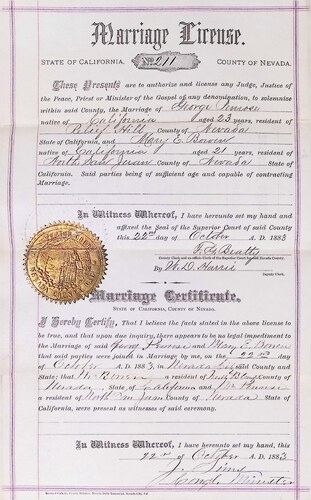 Marriage License.
STATE OF CALIFORNIA. No. 211 COUNTY OF NEVADA.
These Presents are to authorize and license any Judge, Justice of
the Peace, Priest or Minister of the Gospel of any denomination, to solemnize
within said County, the Marriage of George
native of California aged 23 years, resident of
Hill County of Nevada
State of California, and Mary E Bowen
native of California aged 21 years, resident of
North San Juan County of Nevada State of
California. Said parties being of sufficient age and capable of contracting
Marriage.
In Witness Whereof, I have hereunto set my hand and
affixed the Seal of the Superior Court of said County
this 22nd day of October A. D. 1883
Beatty
County Clerk, and ex-officio Clerk of the Superior Court
By W. D. Harris
Deputy Clerk.
Marriage Certificate.
STATE OF CALIFORNIA, COUNTY OF NEVADA.
I Hereby Certify, That I believe the facts stated in the above license
to be true, and that upon due inquiry, there appears to be no legal impediment to
the Marriage of said George and Mary E. Bowen
that said parties were joined in Marriage by me, on the 22nd day
of October A. D. 1883, in Nevada County
and State; that Bowen a resident of County of
Nevada State of California and
a resident of North San Juan County of Nevada State of
California, were present as witnesses of said ceremony.
In Witness Whereof, I have hereunto set my hand, this
22nd of October A. D. 1883
J. Sims
Minister